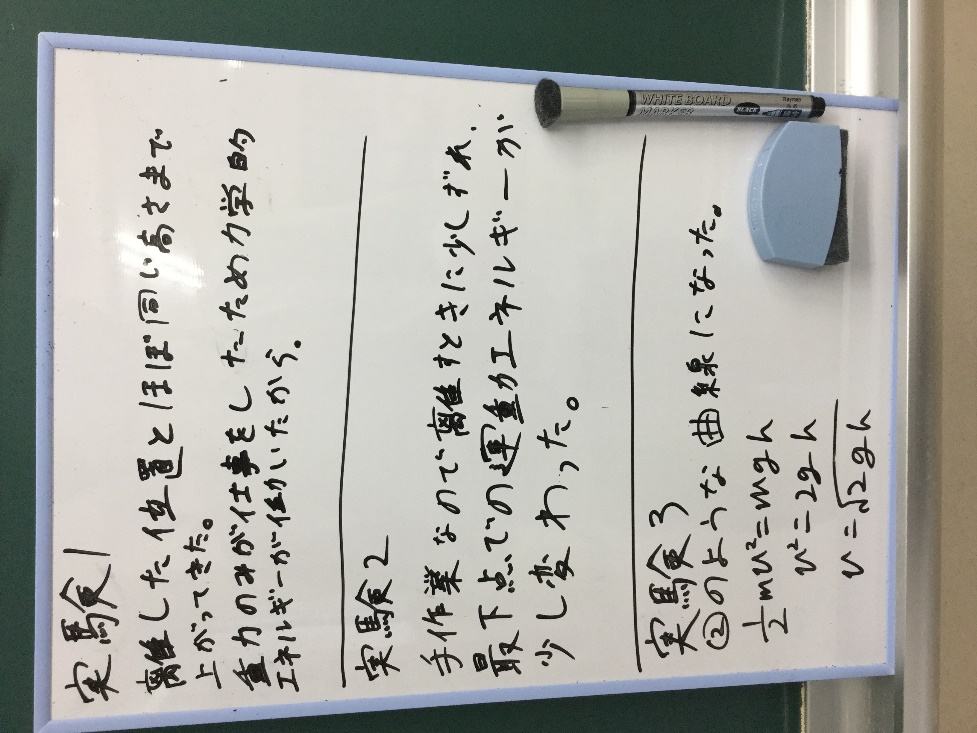 実験1
離した位置とほぼ同じ高さまで
上がってきた。
重力のみが仕事をしたため力学的
エネルギーが働いたから。
実験2
手作業なので離すときに少しずれ、
最下点での運動エネルギーが
少し変わった。
実験3
②のような曲線になった。
1/2 mv²=mgh
v²=2gh
v=√2gh
WHITE BOARD
MARKER
BLACK